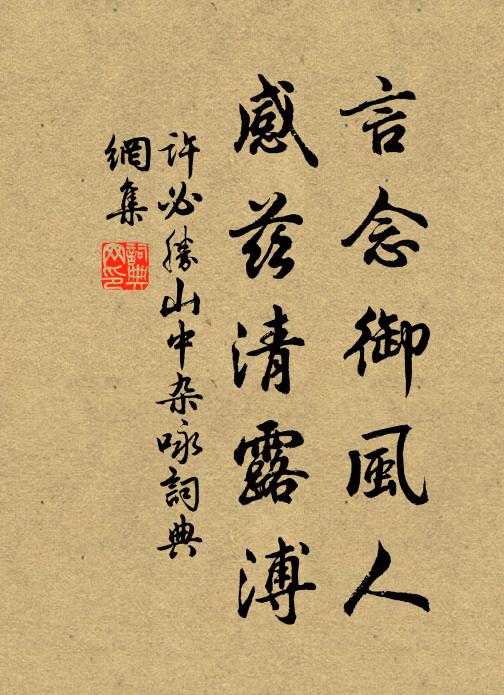 言念御風人
感茲清露溥
許必勝山中杂咏詞典
網集
詞典
网印